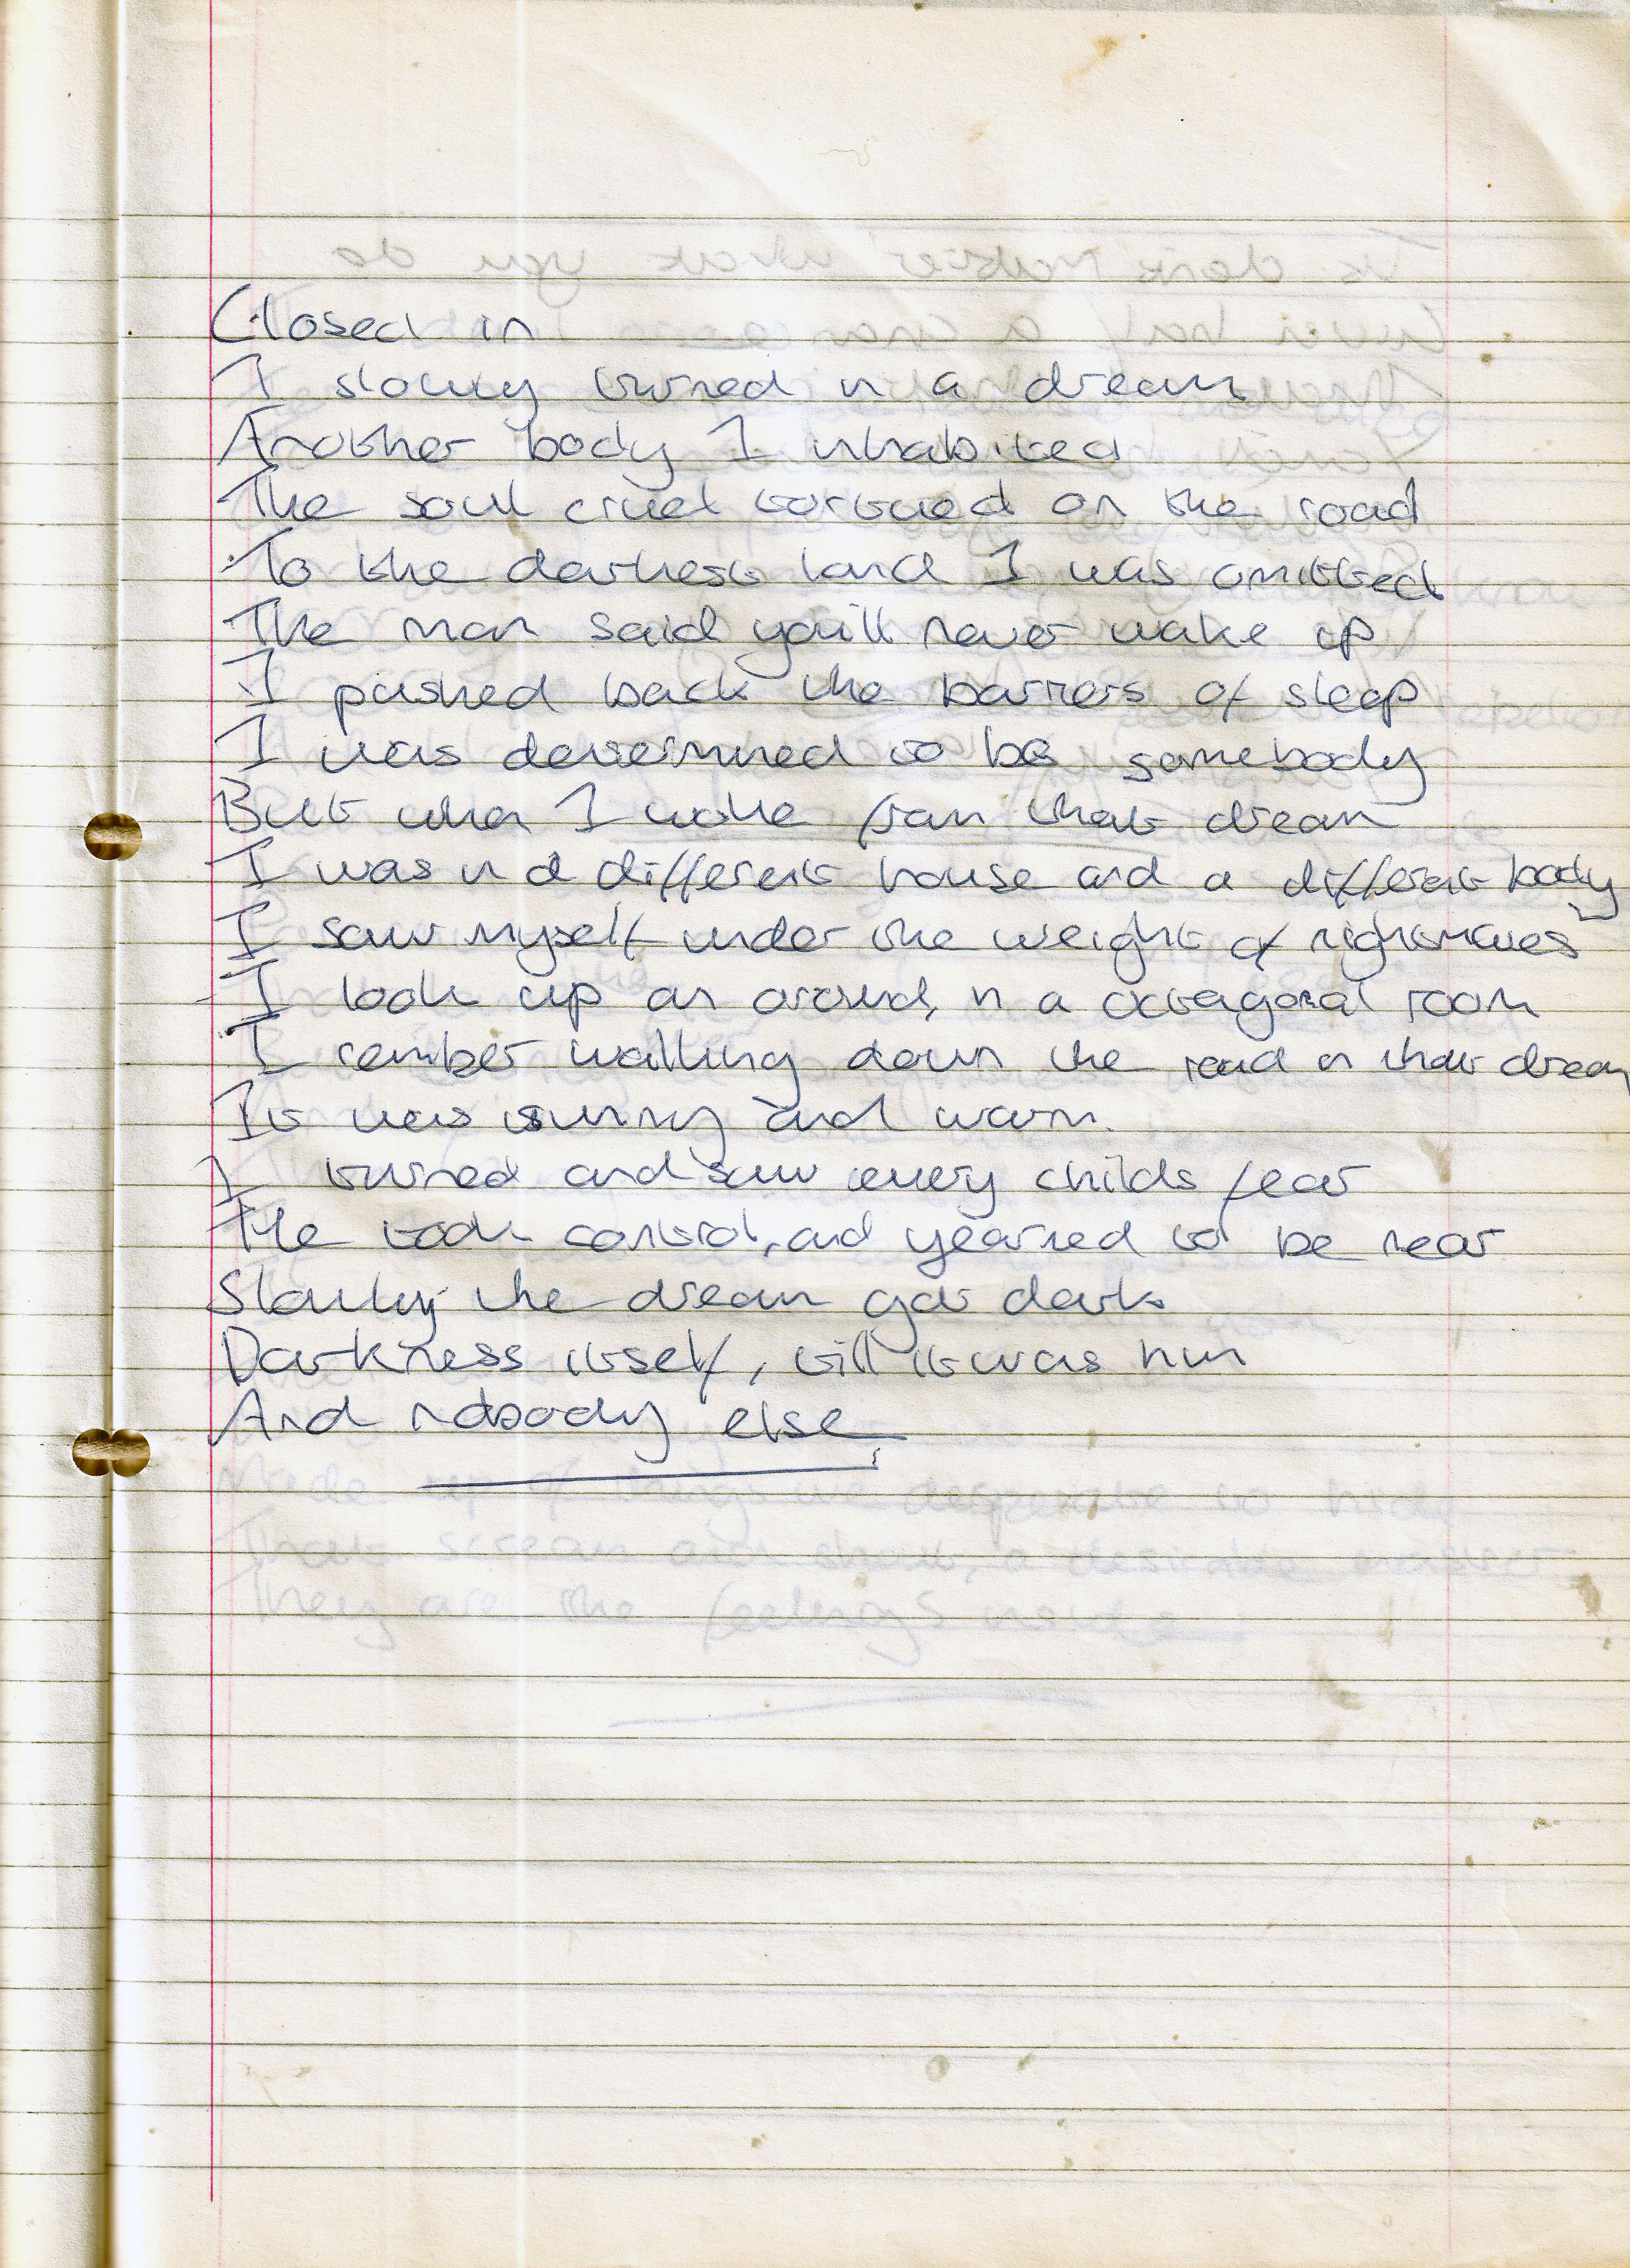 Closed in
I slowly turned in a dream
Another body I inhabited
The soul cruel tortued on the road
To the darkest land I was omitted
The man said you'll never wake up
I pushed back the barriers of sleep
I was determined to be somebody
But when I woke from that dream
I was in a different house and a different body
I saw myself under the weight of nightmares
I look up an around, in a octagonal room
I rember walking down the road in that dream
It was sunny and warm.
I turned and saw every childs fear
He took control, and yearned to be near
Slowly the dream got dark
Darkness itself, till it was him
And nobody else
They are the feelings inside